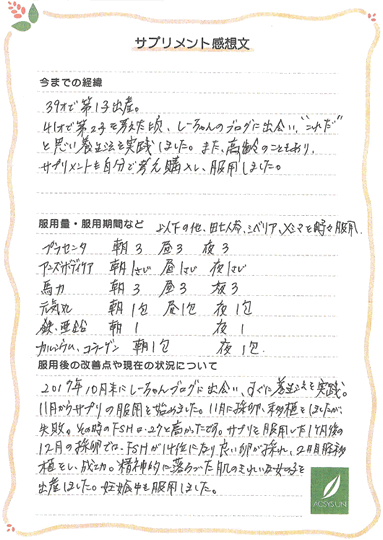 サプリメント感想文
今までの経緯
39才で第1子出産。
41才で第2子を考えた頃、しーちゃんのブログに出会い、"これだ"
と思い養生法を実践しました。また、高齢のこともあり、
サプリメントも自分で考え購入し、服用しました。
服用量・服用期間など よ以下の他、田七人参、シベリア、メシマを時々服用
プラセンタ 朝3 昼3 夜3
朝1さじ 昼1さじ 夜1さじ
馬力 朝3 昼3 夜3
元気丸 朝1包 昼1包 夜1包
鉄、亜鉛 朝1 夜1
カルシウム、コラーゲン 朝1包 夜1包.
服用後の改善点や現在の状況について
2017年10月末にしーちゃんブログに出会い、すぐに養生法を実践。
11月からサプリの服用を始めました。11月に採卵、移植をしましたが、
失敗。その時のFSHは27と高かったです。サプリを服用した1ヶ月後の
12月の採卵では、FSHが14位になり良い卵が採れ、2月胚移
植をし、成功。精神的に落ちついた肌のきれいな女の子を
出産しました。妊娠中も服用しました。
ACSYSUNI